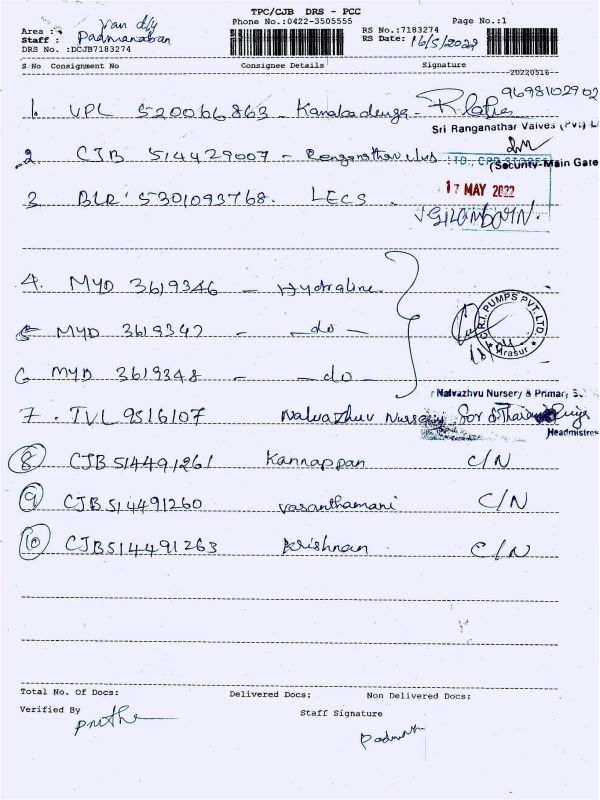 TPC/CJB DRS - PCC
Area : Van d/y
Phone No.:0422-3505555
Page No.:1
Staff : Padmanaban
RS No.:7183274
DRS No. :DCJB7183274
RS Date: 16/5/2022
S No Consignment No Consignee Details Signature
20220516
9698102902
1. VPL 520066863 - Kanabadenga -
Sri Ranganathar Valves (Pvt) L
2. CJB 514429007 -
(Security-Main Gate
17 MAY 2022
3. BLR 5301093768. LECS.
4. MYD 3619346 - Hydraline
5 MYD 3619347 - -do-
C.R.I. PUMPS PVT. LTD.
Arasur
6 MYD 3619348 - -do-
Nalvazhvu Nursery & Primary S
7. TVL 9516107 Nalvazhuv Nursery
Headmistres
8 CJB 514491261 Kannappan C/N
9 CJB 514491260 Vasanthamani C/N
10 CJB 514491263 Krishnan C/N
Total No. Of Docs: Delivered Docs: Non Delivered Docs:
Verified By
Staff Signature